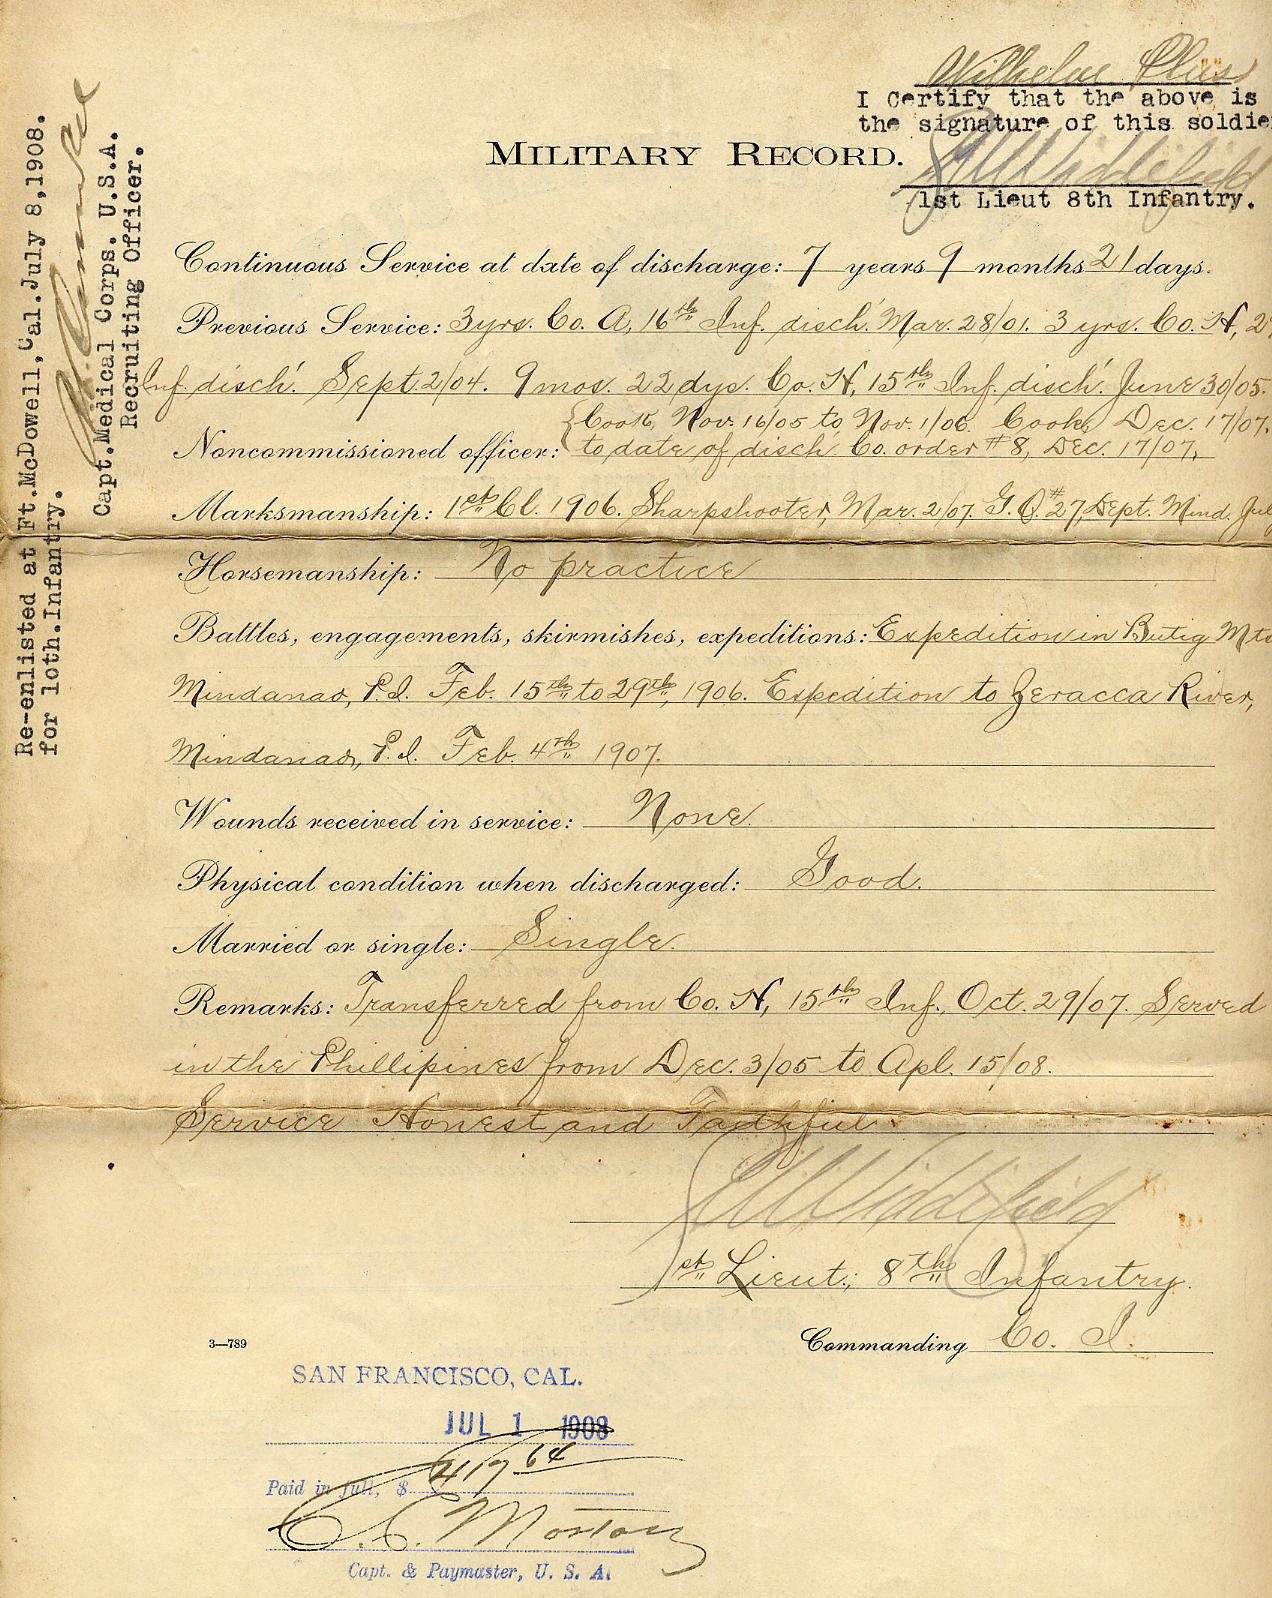 Wilhelm
I Certify that the above is
the signature of this soldie
Widdifield
1st Lieut 8th Infantry.
MILITARY RECORD.
Continuous Service at date of discharge: 7 years 9 months 21 days.
Previous Service: 3 yrs. Co. A, 16th Inf. disch. Mar. 28/01. 3 yrs. Co. H, 2
Inf. disch. Sept. 2/04. 9 mos. 22 dys. Co. H, 15th Inf. disch. June 30/05.
Cook, Nov. 16/05 to Nov. 1/06. Cook, Dec. 17/07.
Noncommissioned officer: to date of disch. Co. order #8, Dec. 17/07.
Marksmanship: 1st Cl. 1906. Sharpshooter, Mar. 2/07. G.O. #27, Dept. Mind. Jul
Horsemanship: No practice
Battles, engagements, skirmishes, expeditions: Expedition in Butig Mts
Mindanao, P.I. Feb. 15th to 29th, 1906. Expedition to Zeracca River,
Mindanao, P.I. Feb. 4th 1907.
Wounds received in service: None.
Physical condition when discharged: Good.
Married or single: Single.
Remarks: Transferred from Co. H, 15th Inf. Oct. 29/07. Served
in the Phillipines from Dec. 3/05 to Apl. 15/08.
Service Honest and Faithful
Widdifield
1st Lieut., 8th Infantry.
Commanding Co. I.
3—789
SAN FRANCISCO, CAL.
JUL 1 1908
Paid in full, $ 417 64
Capt. & Paymaster, U. S. A.
Re-enlisted at Ft.McDowell,Cal.July 8,1908.
for 10th.Infantry.
Capt.Medical Corps. U.S.A.
Recruiting Officer.